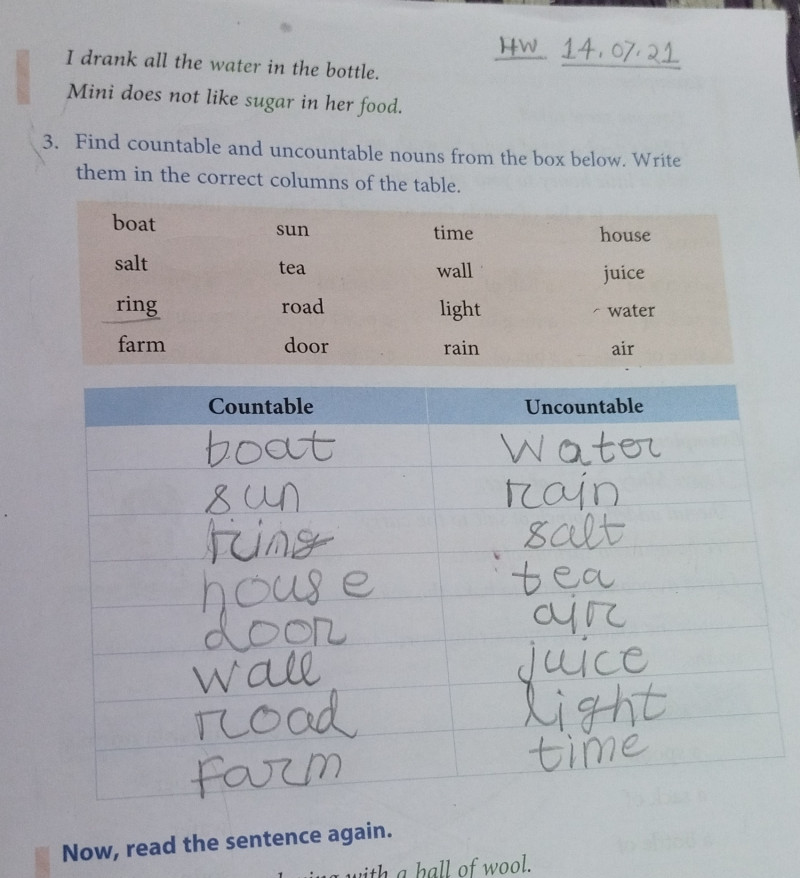 HW 14.07.21
I drank all the water in the bottle.
Mini does not like sugar in her food.
3. Find countable and uncountable nouns from the box below. Write
them in the correct columns of the table.
boat sun time house
salt tea wall juice
ring road light water
farm door rain air
Countable Uncountable
boat Water
sun rain
ring salt
house tea
door air
wall juice
road light
Farm time
Now, read the sentence again.
with a ball of wool.